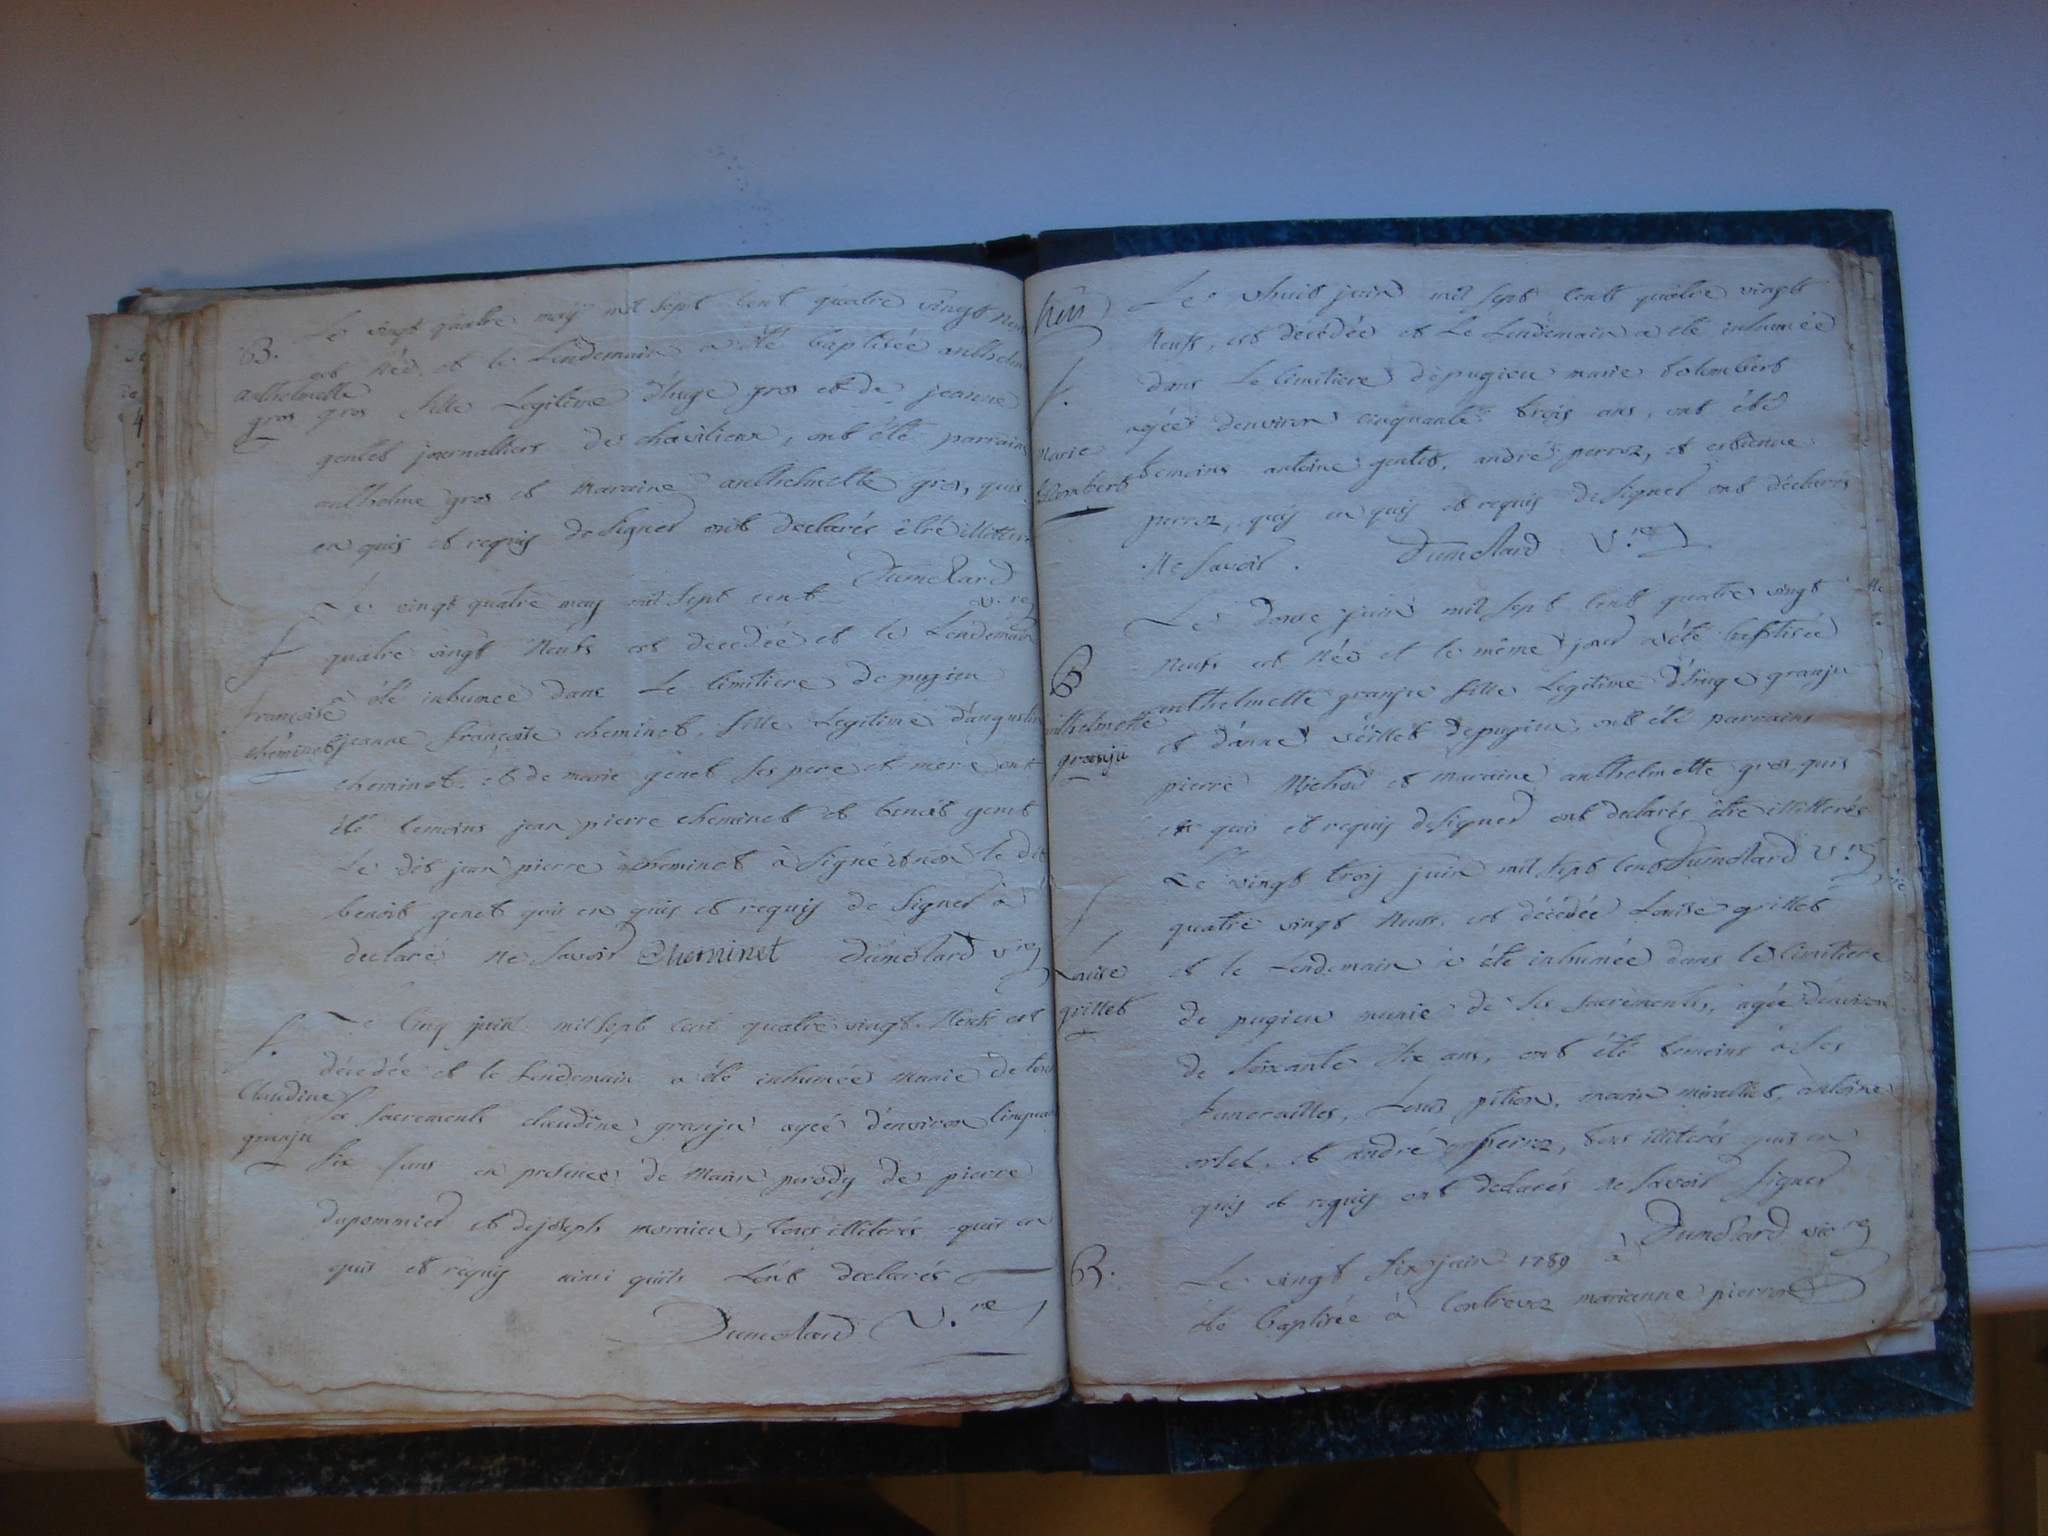 B.
Le vingt quatre may mil sept cent quatre vingt neuf
est née, et le Lendemain a été baptisée anthelmette
anthelmette
gros
gros fille Legitime d'huge gros et de jeanne
gentet journalliers de chavilieux, ont été parrains
anthelme gros et maraine anthelmette gros, quis
en quis et requis de signer ont declarés être illitteres
Dumolard
v.re
Le vingt quatre may mil sept cent
f
quatre vingt neufs est decedée et le Lendemain
a été inhumée dans Le cimitiere de pugieu
françoise
cheminet
jeanne françoise cheminet, fille Legitime d'augustin
cheminet, et de marie genet ses pere et mere ont
été temoins jean pierre cheminet et benoit genet
Le dit jean pierre cheminet à signé et non le dit
benoit genet qui en quis et requis de signer à
declaré ne savoir Cheminet Dumolard v.re
f.
Le cinq juin mil sept cent quatre vingt neuf est
décedée et le Lendemain a été inhumée munie de tous
Claudine
granju
ses sacrements claudine granju agée d'environ cinquante
six ans en presence de Marin perody de pierre
dupommier et de joseph moraieu, tous illiterés quis en
quis et requis ainsi quils L'ont declarés
Dumolard V.re
Le huit juin mil sept cent quatre vingt
neufs, est décédée et Le Lendemain a été inhumée
f.
dans Le cimitiere de pugieu marie tolombert
agée d'environ cinquante trois ans, ont été
Marie
tolombert
temoins antoine gentet, andré perroz, et estienne
perroz, quis en quis et requis de signer ont déclarés
ne savoir. Dumolard V.re
Le douse juin mil sept cent quatre vingt
B
neufs est née et le même jour a été baptisée
anthelmette
granju
anthelmette granju fille Legitime d'huge granju
et d'anne veillet de pugieu, ont été parrains
pierre Michod et maraine anthelmette gros, quis
en quis et requis de signer ont declarés être illitterés
Dumolard V.re
Le vingt trois juin mil sept cent
f
quatre vingt neuf, est décédée Louise grillet
Louise
grillet
et le Lendemain a été inhumée dans le cimitiere
de pugieu munie de ses sacrements, agée d'environ
de soixante dix ans, ont été temoins à ses
funerailles, Louis pition, marin miraillet, antoine
ortel, et andré perroz, tous illiterés quis en
quis et requis ont declarés ne savoir signer
Dumolard vic.re
B.
Le vingt six juin 1789 à
été baptisée à Contrevoz marianne pierron